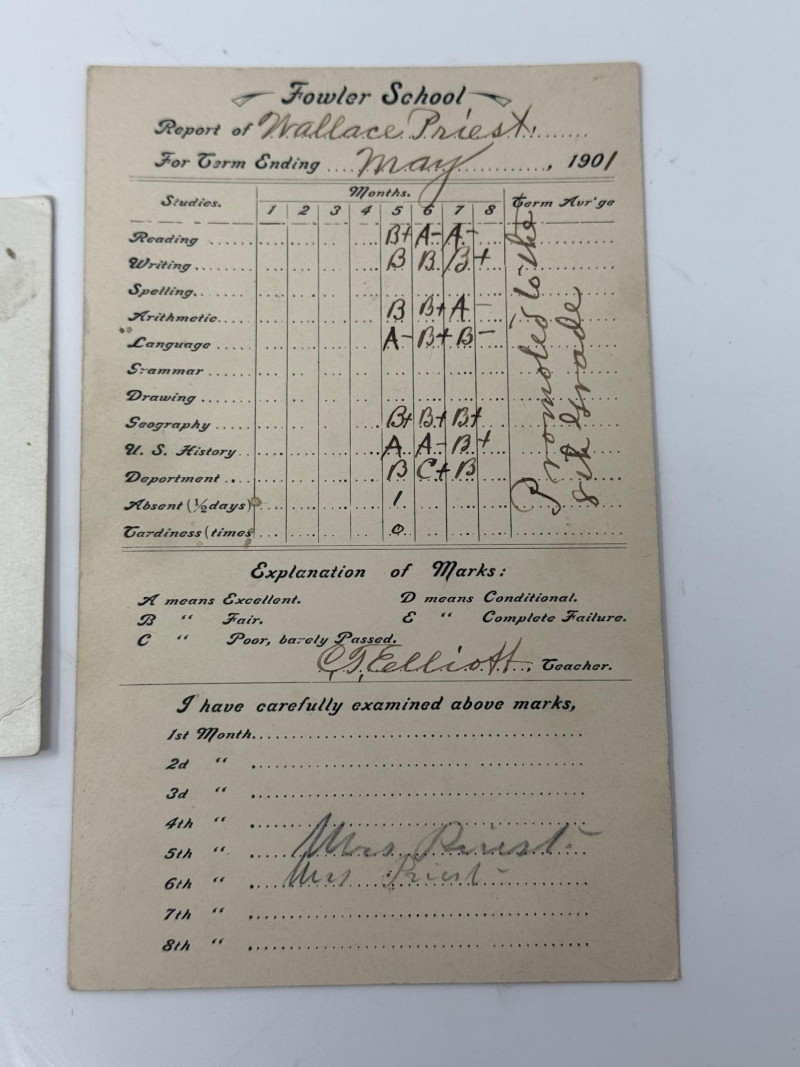 Fowler School
Report of Wallace Priest.
For Term Ending May, 1901
Studies. Months. Term Avr'ge
1 2 3 4 5 6 7 8
Reading B+ A- A-
Writing B B B+
Spelling
Arithmetic B B+ A-
Language A- B+ B-
Grammar
Drawing
Geography B+ B+ B+
U. S. History A A- B+
Deportment B C+ B
Absent (½ days) 1
Tardiness (times 0
Promoted to the
8th Grade
Explanation of Marks:
A means Excellent. D means Conditional.
B " Fair. E " Complete Failure.
C " Poor, barely Passed.
C.T. Elliott, Teacher.
I have carefully examined above marks,
1st Month
2d "
3d "
4th "
5th " Mrs Priest
6th " Mrs Priest
7th "
8th "